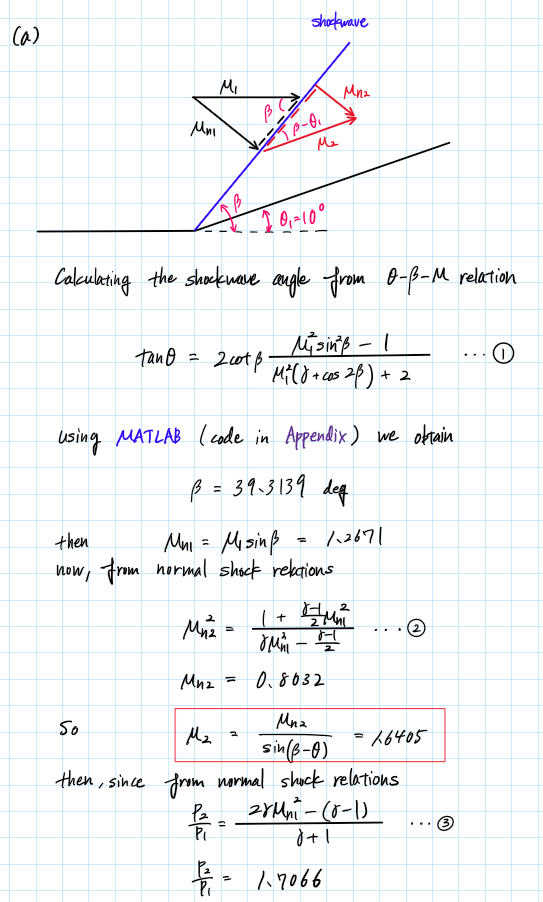 (a)
shockwave
M₁
Mn1
β
β-θ₁
Mn2
M₂
β
θ₁=10°
Calculating the shockwave angle from θ-β-M relation
tanθ = 2cotβ (M₁²sin²β - 1) / (M₁²(γ + cos 2β) + 2) ... ①
using MATLAB (code in Appendix) we obtain
β = 39.3139 deg
then Mn1 = M₁sinβ = 1.2671
now, from normal shock relations
Mn2² = (1 + (γ-1)/2 Mn1²) / (γMn1² - (γ-1)/2) ... ②
Mn2 = 0.8032
So M₂ = Mn2 / sin(β-θ) = 1.6405
then, since from normal shock relations
P₂/P₁ = (2γMn1² - (γ-1)) / (γ+1) ... ③
P₂/P₁ = 1.7066